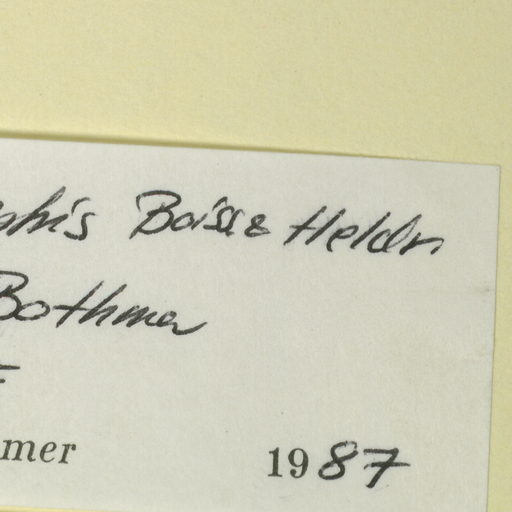 phis Boiss & Heldr
Bothmer
mer 1987